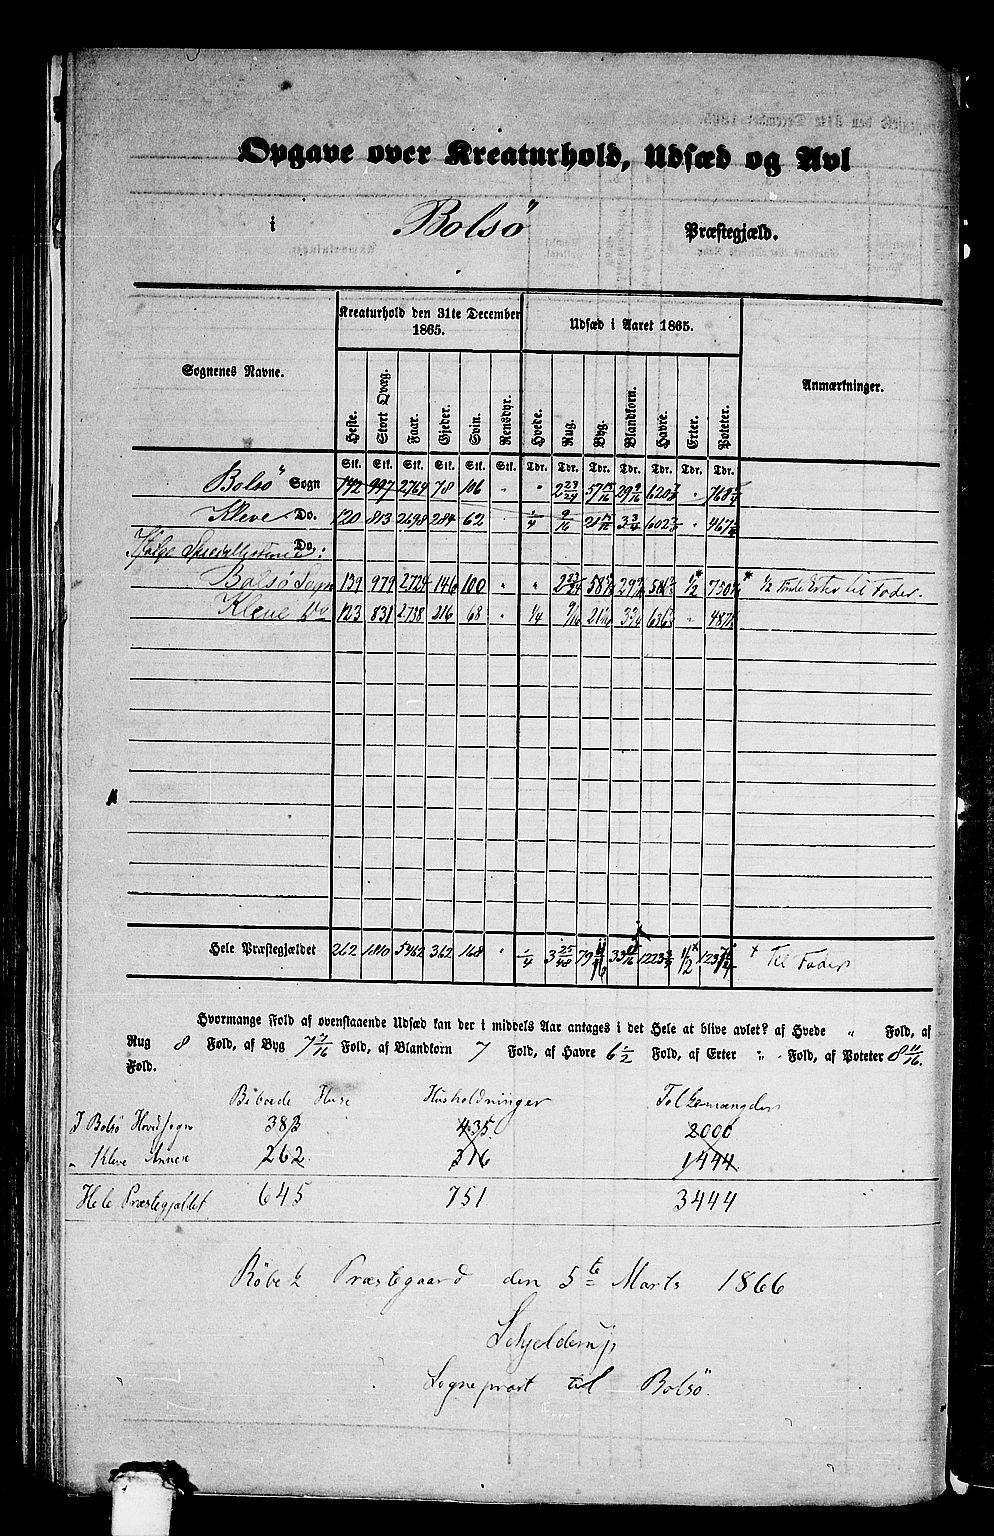 Opgave over Kreaturhold, Udsæd og Avl
i Bolsö Præstegjæld.
Sognenes Navne. Kreaturhold den 31te December 1865. Udsæd i Aaret 1865. Anmærkninger.
Heste. Stort Qvæg. Faar. Gjeder. Svin. Rensdyr. Hvede. Rug. Byg. Blandkorn. Havre. Erter. Poteter.
Stk. Stk. Stk. Stk. Stk. Stk. Tdr. Tdr. Tdr. Tdr. Tdr. Tdr. Tdr.
Bolsö Sogn 142 997 2764 78 106 " " 2 23/24 57 29 9/16 620 " 768
Kleve Do. 120 813 2698 284 62 1/4 9/16 21 3 3/4 602 " 467
Ifølge Speciallisterne Do. :
Bolsö Sogn 139 979 2724 146 100 " " 2 23/24 58 29 586 1/2 * 750 * 1/2 Tønde Erter til Foder.
Kleve Do 123 831 2738 216 68 " 1/4 9/16 21 3 3/4 636 " 487
Hele Præstegjældet 262 1810 5462 362 168 " 1/4 3 25/48 79 33 1223 1/2 × 1237 × Til Foder
Hvormange Fold af ovenstaaende Udsæd kan der i middels Aar antages i det Hele at blive avlet? af Hvede " Fold, af
Rug 8 Fold, af Byg 7 Fold, af Blandkorn 7 Fold, af Havre 6 1/2 Fold, af Erter " Fold, af Poteter 8 11/16
Fold.
Beboede Huse Husholdninger Folkemængden
I Bolsö Hovedsogn 383 435 2000
" Kleve Annex 262 316 1444
Hele Præstegjældet 645 751 3444
Röbek Præstegaard den 5te Marts 1866
Schjelderup
Sogneprest til Bolsö.